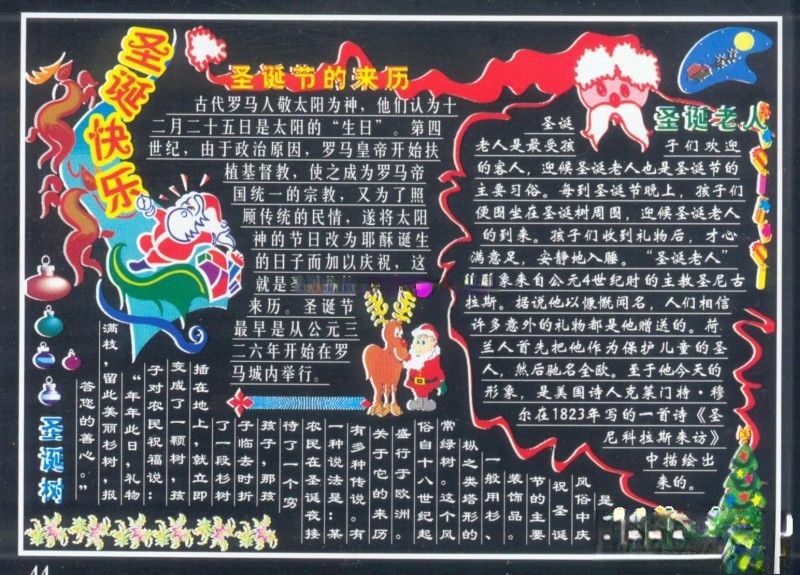 圣诞快乐
圣诞节的来历
古代罗马人敬太阳为神，他们认为十
二月二十五日是太阳的“生日”。第四
世纪，由于政治原因，罗马皇帝开始扶
植基督教，使之成为罗马帝
国统一的宗教，又为了照
顾传统的民情，遂将太阳
神的节日改为耶酥诞生
的日子而加以庆祝，这
就是圣
来历。圣诞节
最早是从公元三
二六年开始在罗
马城内举行。
圣诞老人
圣诞
老人是最受孩子们欢迎
的客人，迎候圣诞老人也是圣诞节的
主要习俗。每到圣诞节晚上，孩子们
便围坐在圣诞树周围，迎候圣诞老人
的到来。孩子们收到礼物后，才心
满意足，安静地入睡。“圣诞老人”
形象来自公元4世纪时的主教圣尼古
拉斯。据说他以慷慨闻名，人们相信
许多意外的礼物都是他赠送的。荷
兰人首先把他作为保护儿童的圣
人，然后驰名全欧。至于他今天的
形象，是美国诗人克莱门特·穆
尔在1823年写的一首诗《圣
尼科拉斯来访》
中描绘出
来的。
圣诞树
是
风俗中庆
祝圣诞
节的主要
装饰品。
一般用杉、
枞之类塔形的
常绿树。这个风
俗自十八世纪起
盛行于欧洲。
关于它的来历
有多种传说。有
一种说法是：某
农民在圣诞夜接
待了一个穷
孩子，那孩
子临去时折
了一段杉树
插在地上，就立即
变成了一颗树，孩
子对农民祝福说：
“年年此日，礼物
满枝，留此美丽杉树，报
答您的善心。”
44